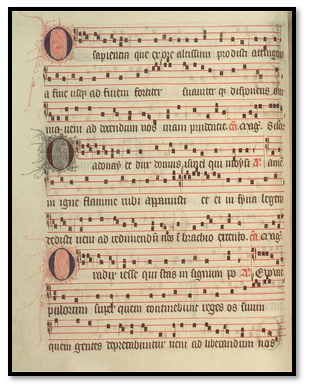 O sapientia que ex ore altissimi prodisti attingens
a fine usque ad finem fortiter suauiter que disponens om
nia ueni ad docendum nos uiam prudentie
O adonay et dux domus israel qui moysi
in igne flamme rubi apparuisti et ei in syna legem
dedisti ueni ad redimendum nos i brachio extento.
O radix iesse qui stas in signum po
pulorum super quem continebunt reges os suum
quem gentes deprecabuntur ueni ad liberandum nos